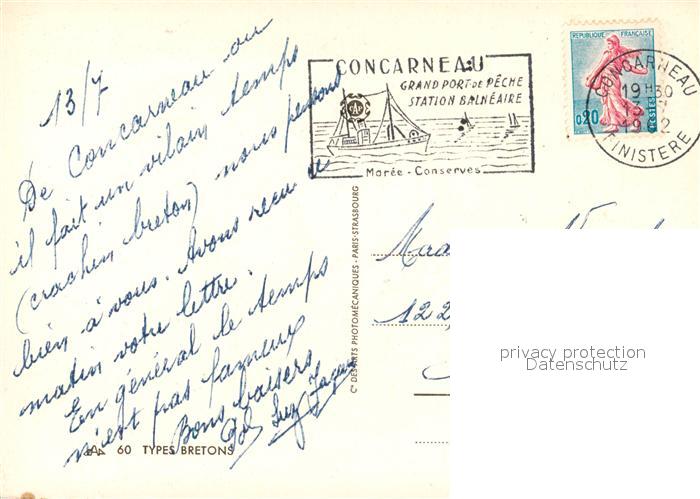 13/7
De Concarneau ou
il fait un vilain temps
(crachin breton) nous pensons
bien à vous. Avons reçu ce
matin votre lettre.
En général le temps
n'est pas fameux
Bons baisers
CONCARNEAU
GRAND PORT DE PÊCHE
STATION BALNÉAIRE
Marée - Conserves
REPUBLIQUE FRANÇAISE
0,20
POSTES
CONCARNEAU
19H30
FINISTERE
122
Cie DES ARTS PHOTOMÉCANIQUES - PARIS-STRASBOURG
60 TYPES BRETONS
privacy protection
Datenschutz